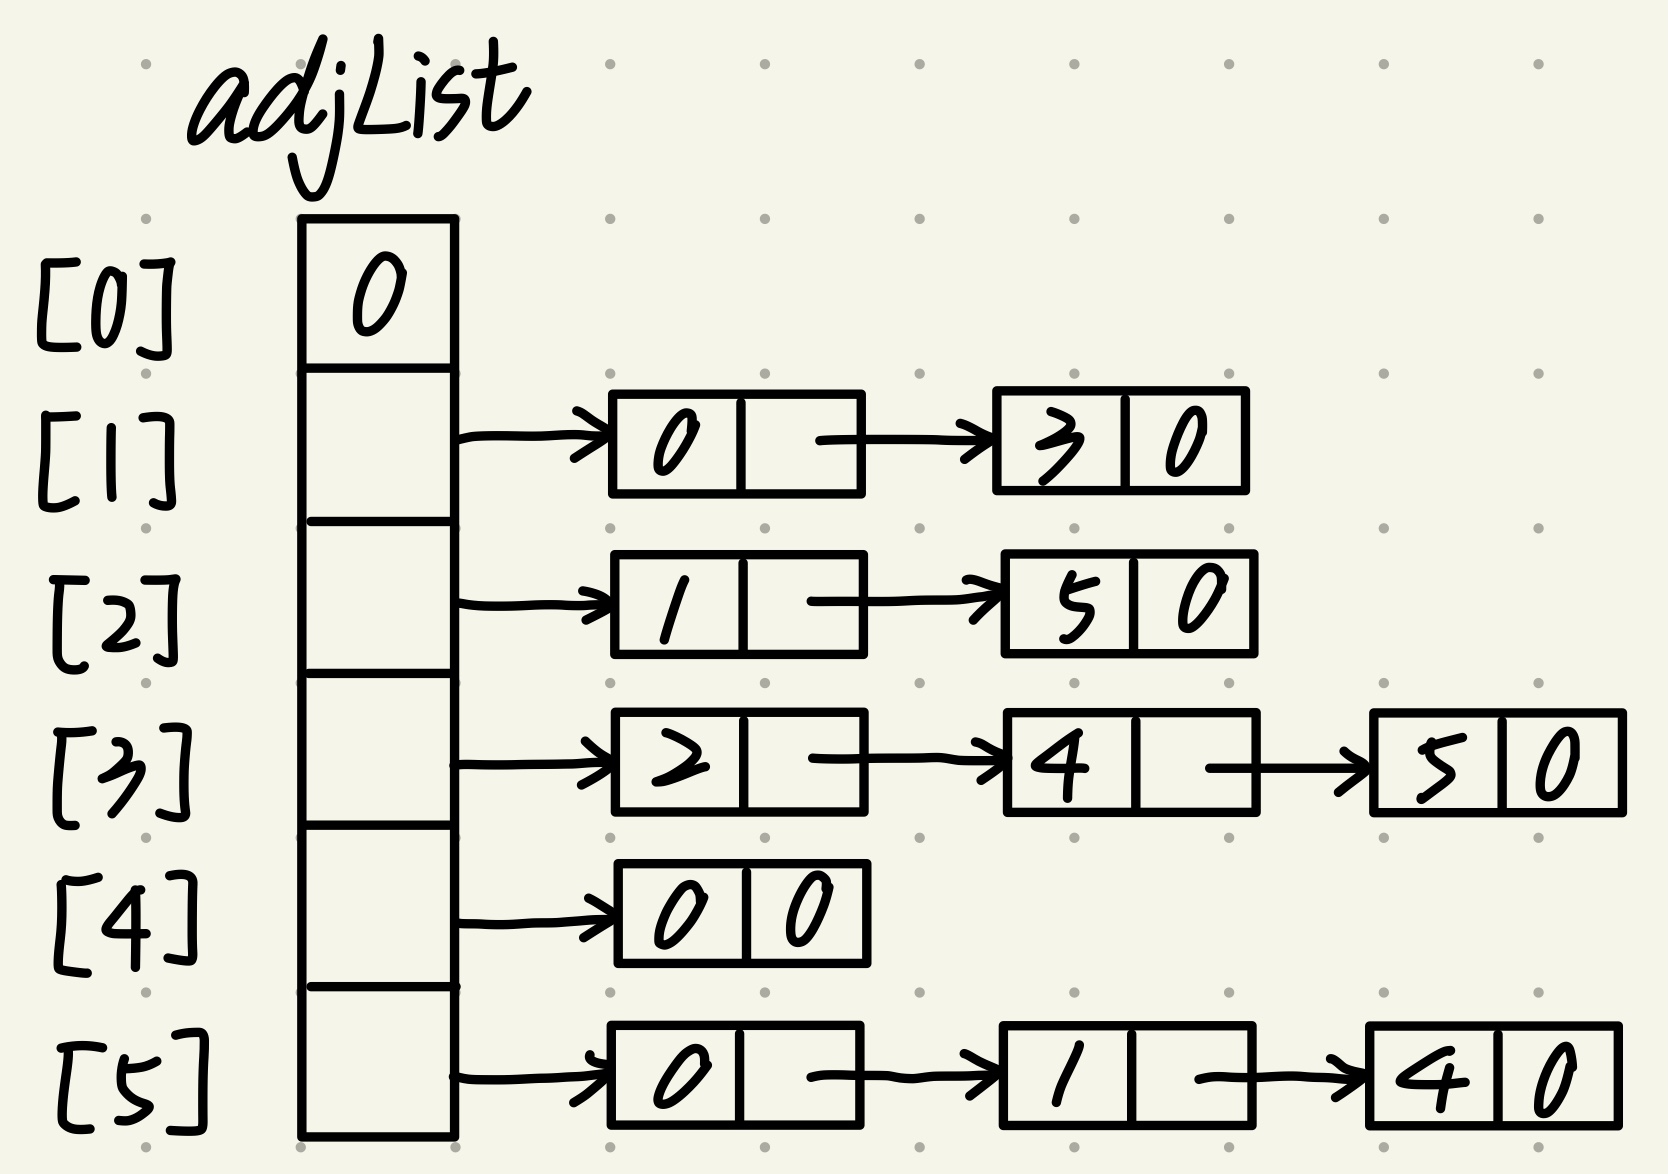 adjList
[0] 0
[1] 0 3 0
[2] 1 5 0
[3] 2 4 5 0
[4] 0 0
[5] 0 1 4 0